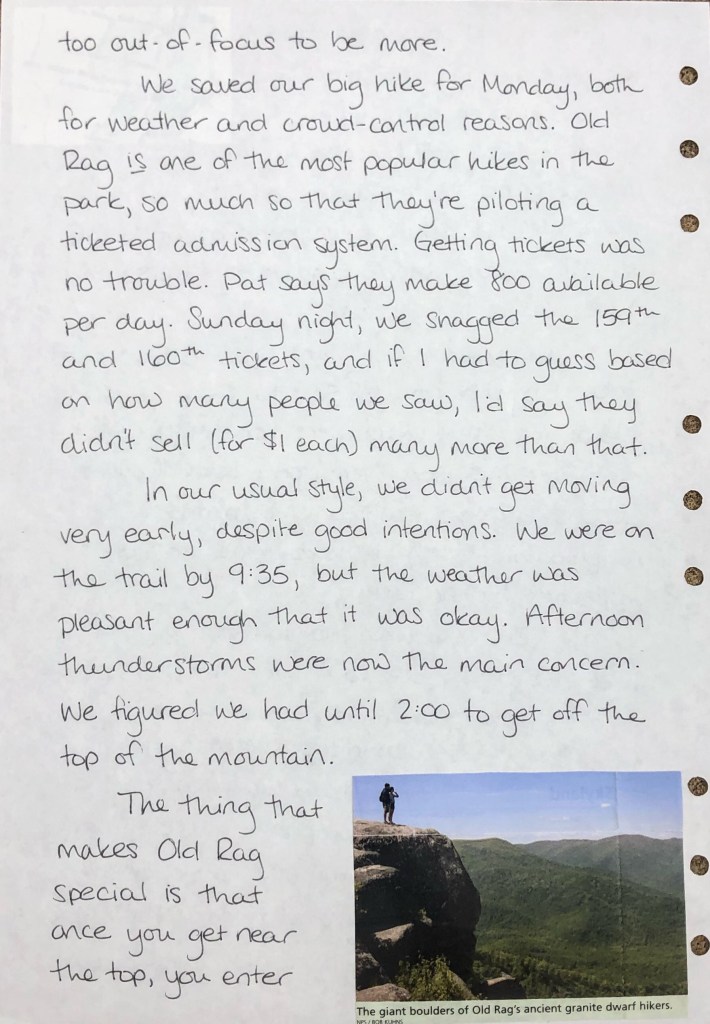 too out-of-focus to be more.
We saved our big hike for Monday, both
for weather and crowd-control reasons. Old
Rag is one of the most popular hikes in the
park, so much so that they're piloting a
ticketed admission system. Getting tickets was
no trouble. Pat says they make 800 available
per day. Sunday night, we snagged the 159th
and 160th tickets, and if I had to guess based
on how many people we saw, I'd say they
didn't sell (for $1 each) many more than that.
In our usual style, we didn't get moving
very early, despite good intentions. We were on
the trail by 9:35, but the weather was
pleasant enough that it was okay. Afternoon
thunderstorms were now the main concern.
We figured we had until 2:00 to get off the
top of the mountain.
The thing that
makes Old Rag
special is that
once you get near
the top, you enter
The giant boulders of Old Rag's ancient granite dwarf hikers.
NPS / BOB KUHNS